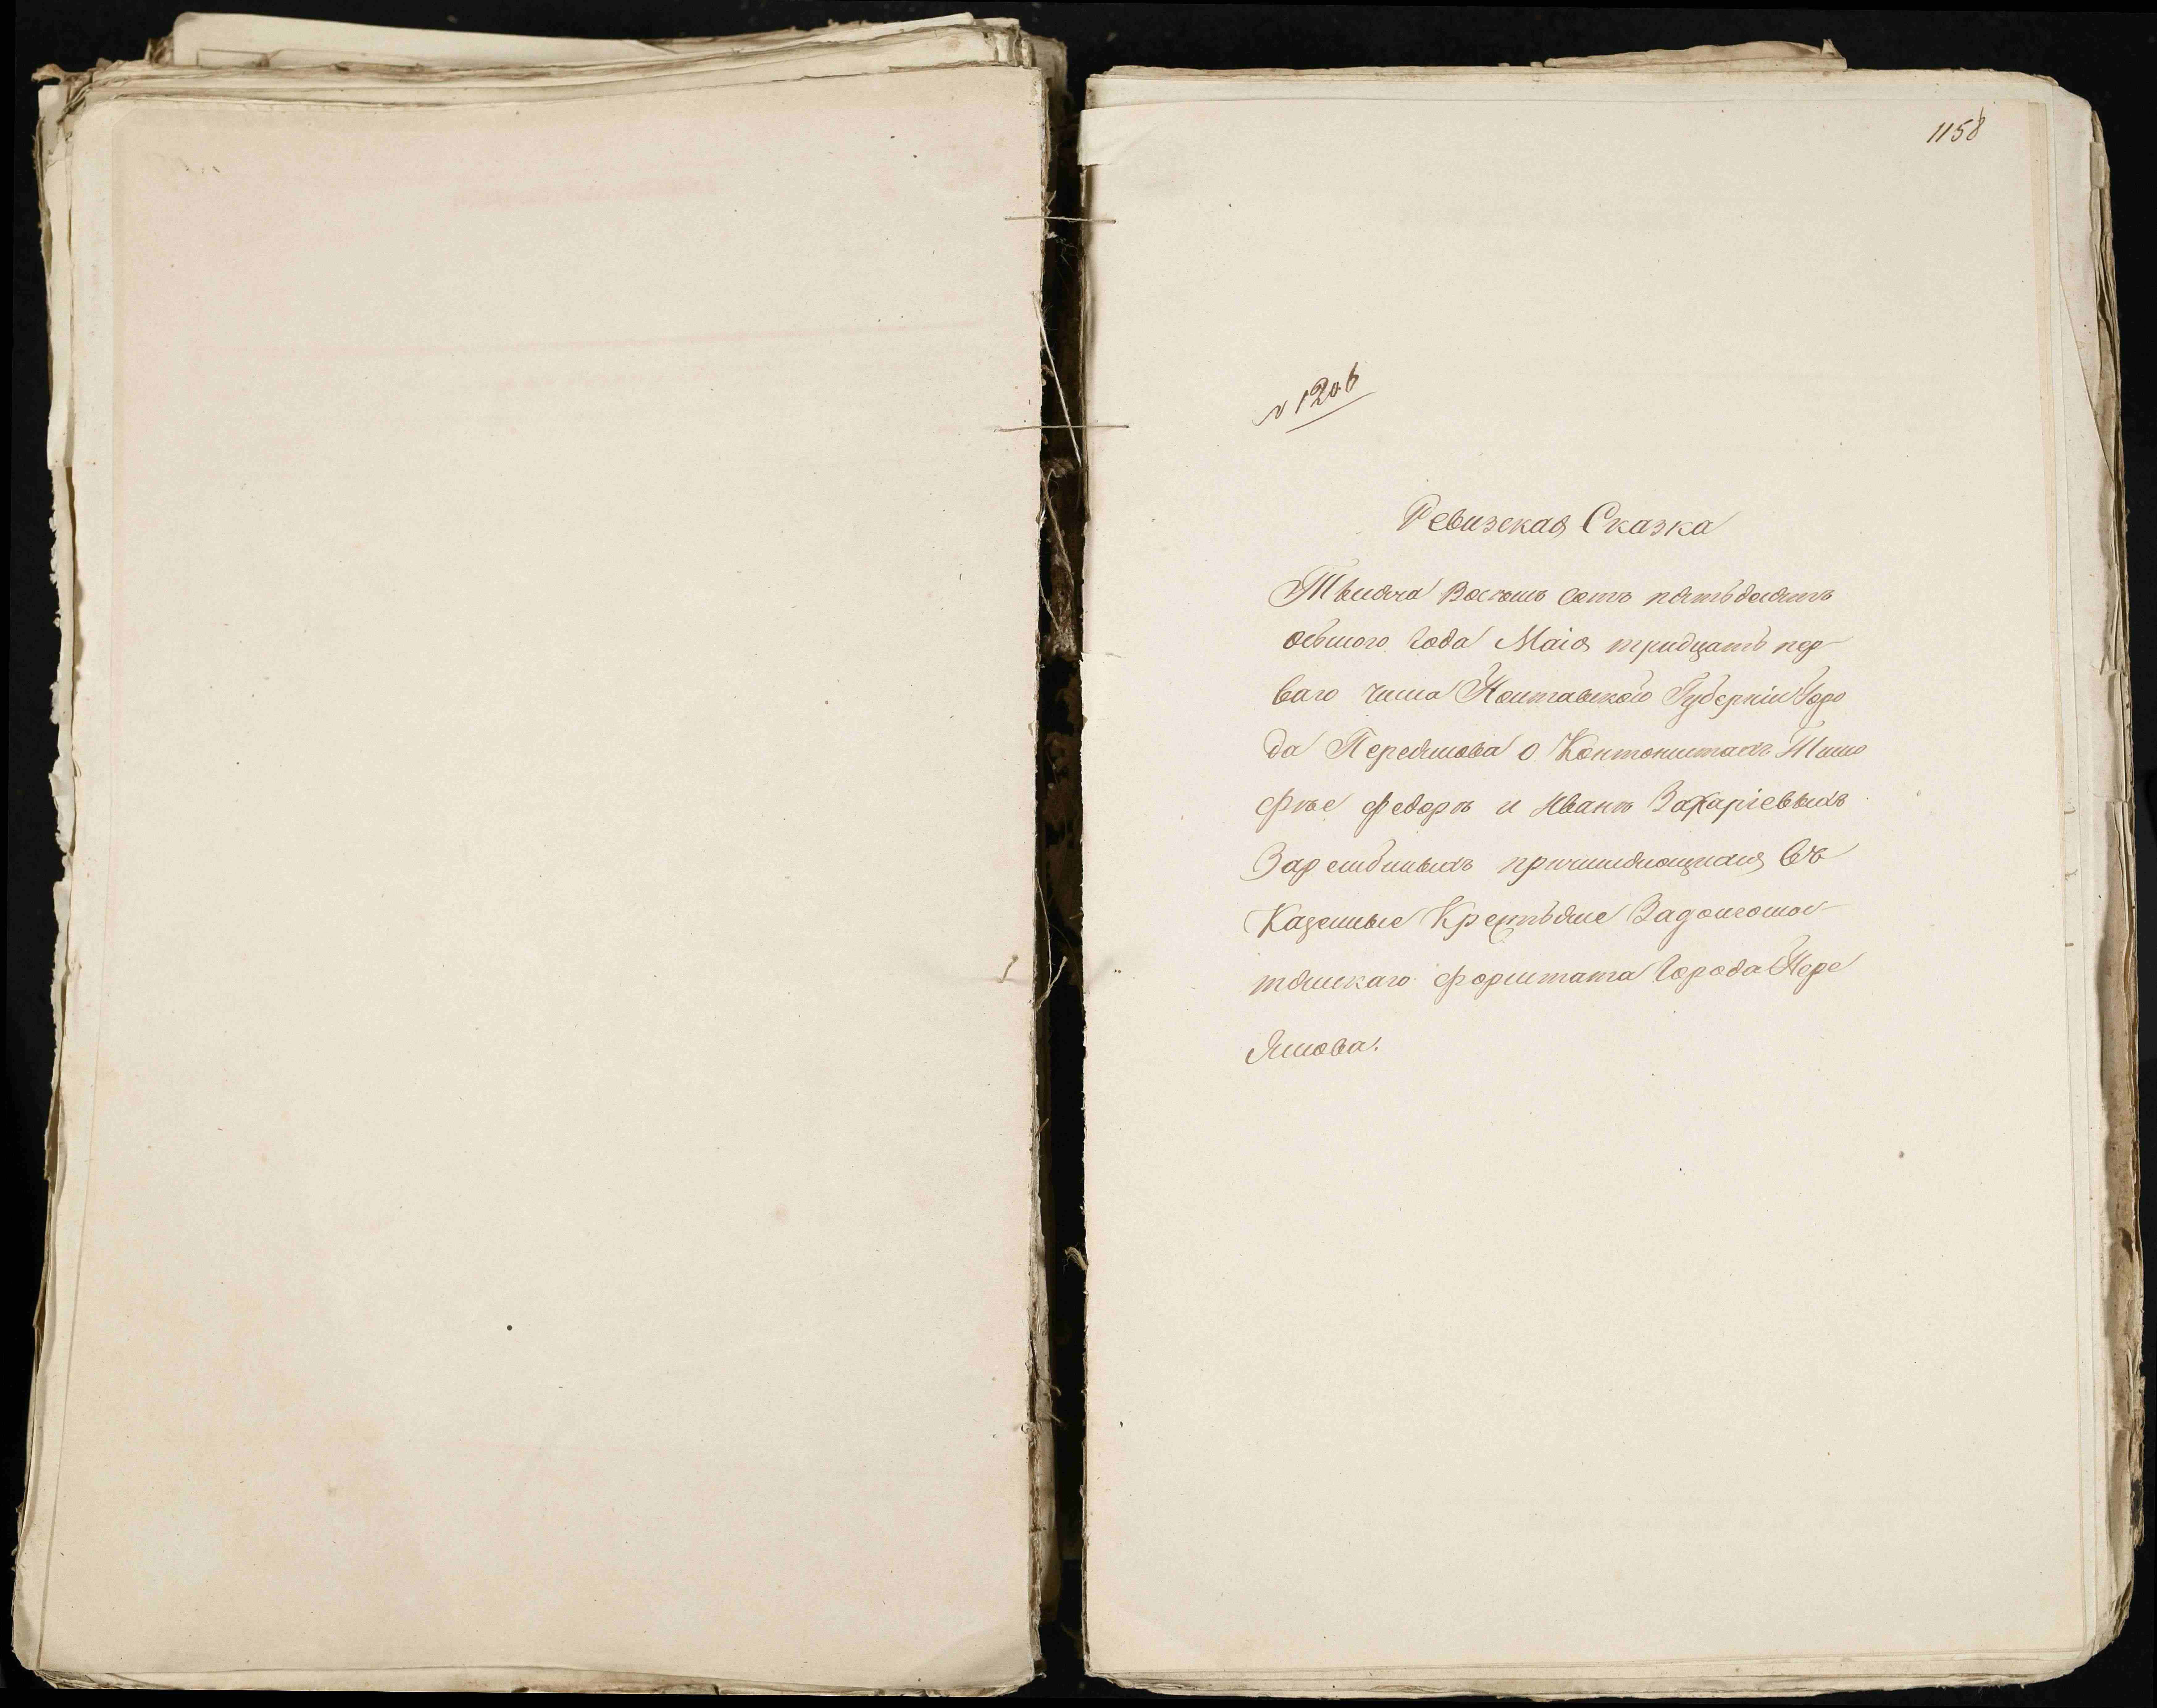 1158
№ 1206
Ревизская Сказка
Тысяча Восемь сотъ пятьдесятъ
осьмого Года Маія тридцать пер-
ваго числа Полтавской Губерніи Горо
да Переяслова о Кантонистахъ Тимо
фѣе Федорѣ и Иванѣ Захаріевыхъ
причисляющихся въ
Казенные Крестьяне
форштата Города Пере
яслова.